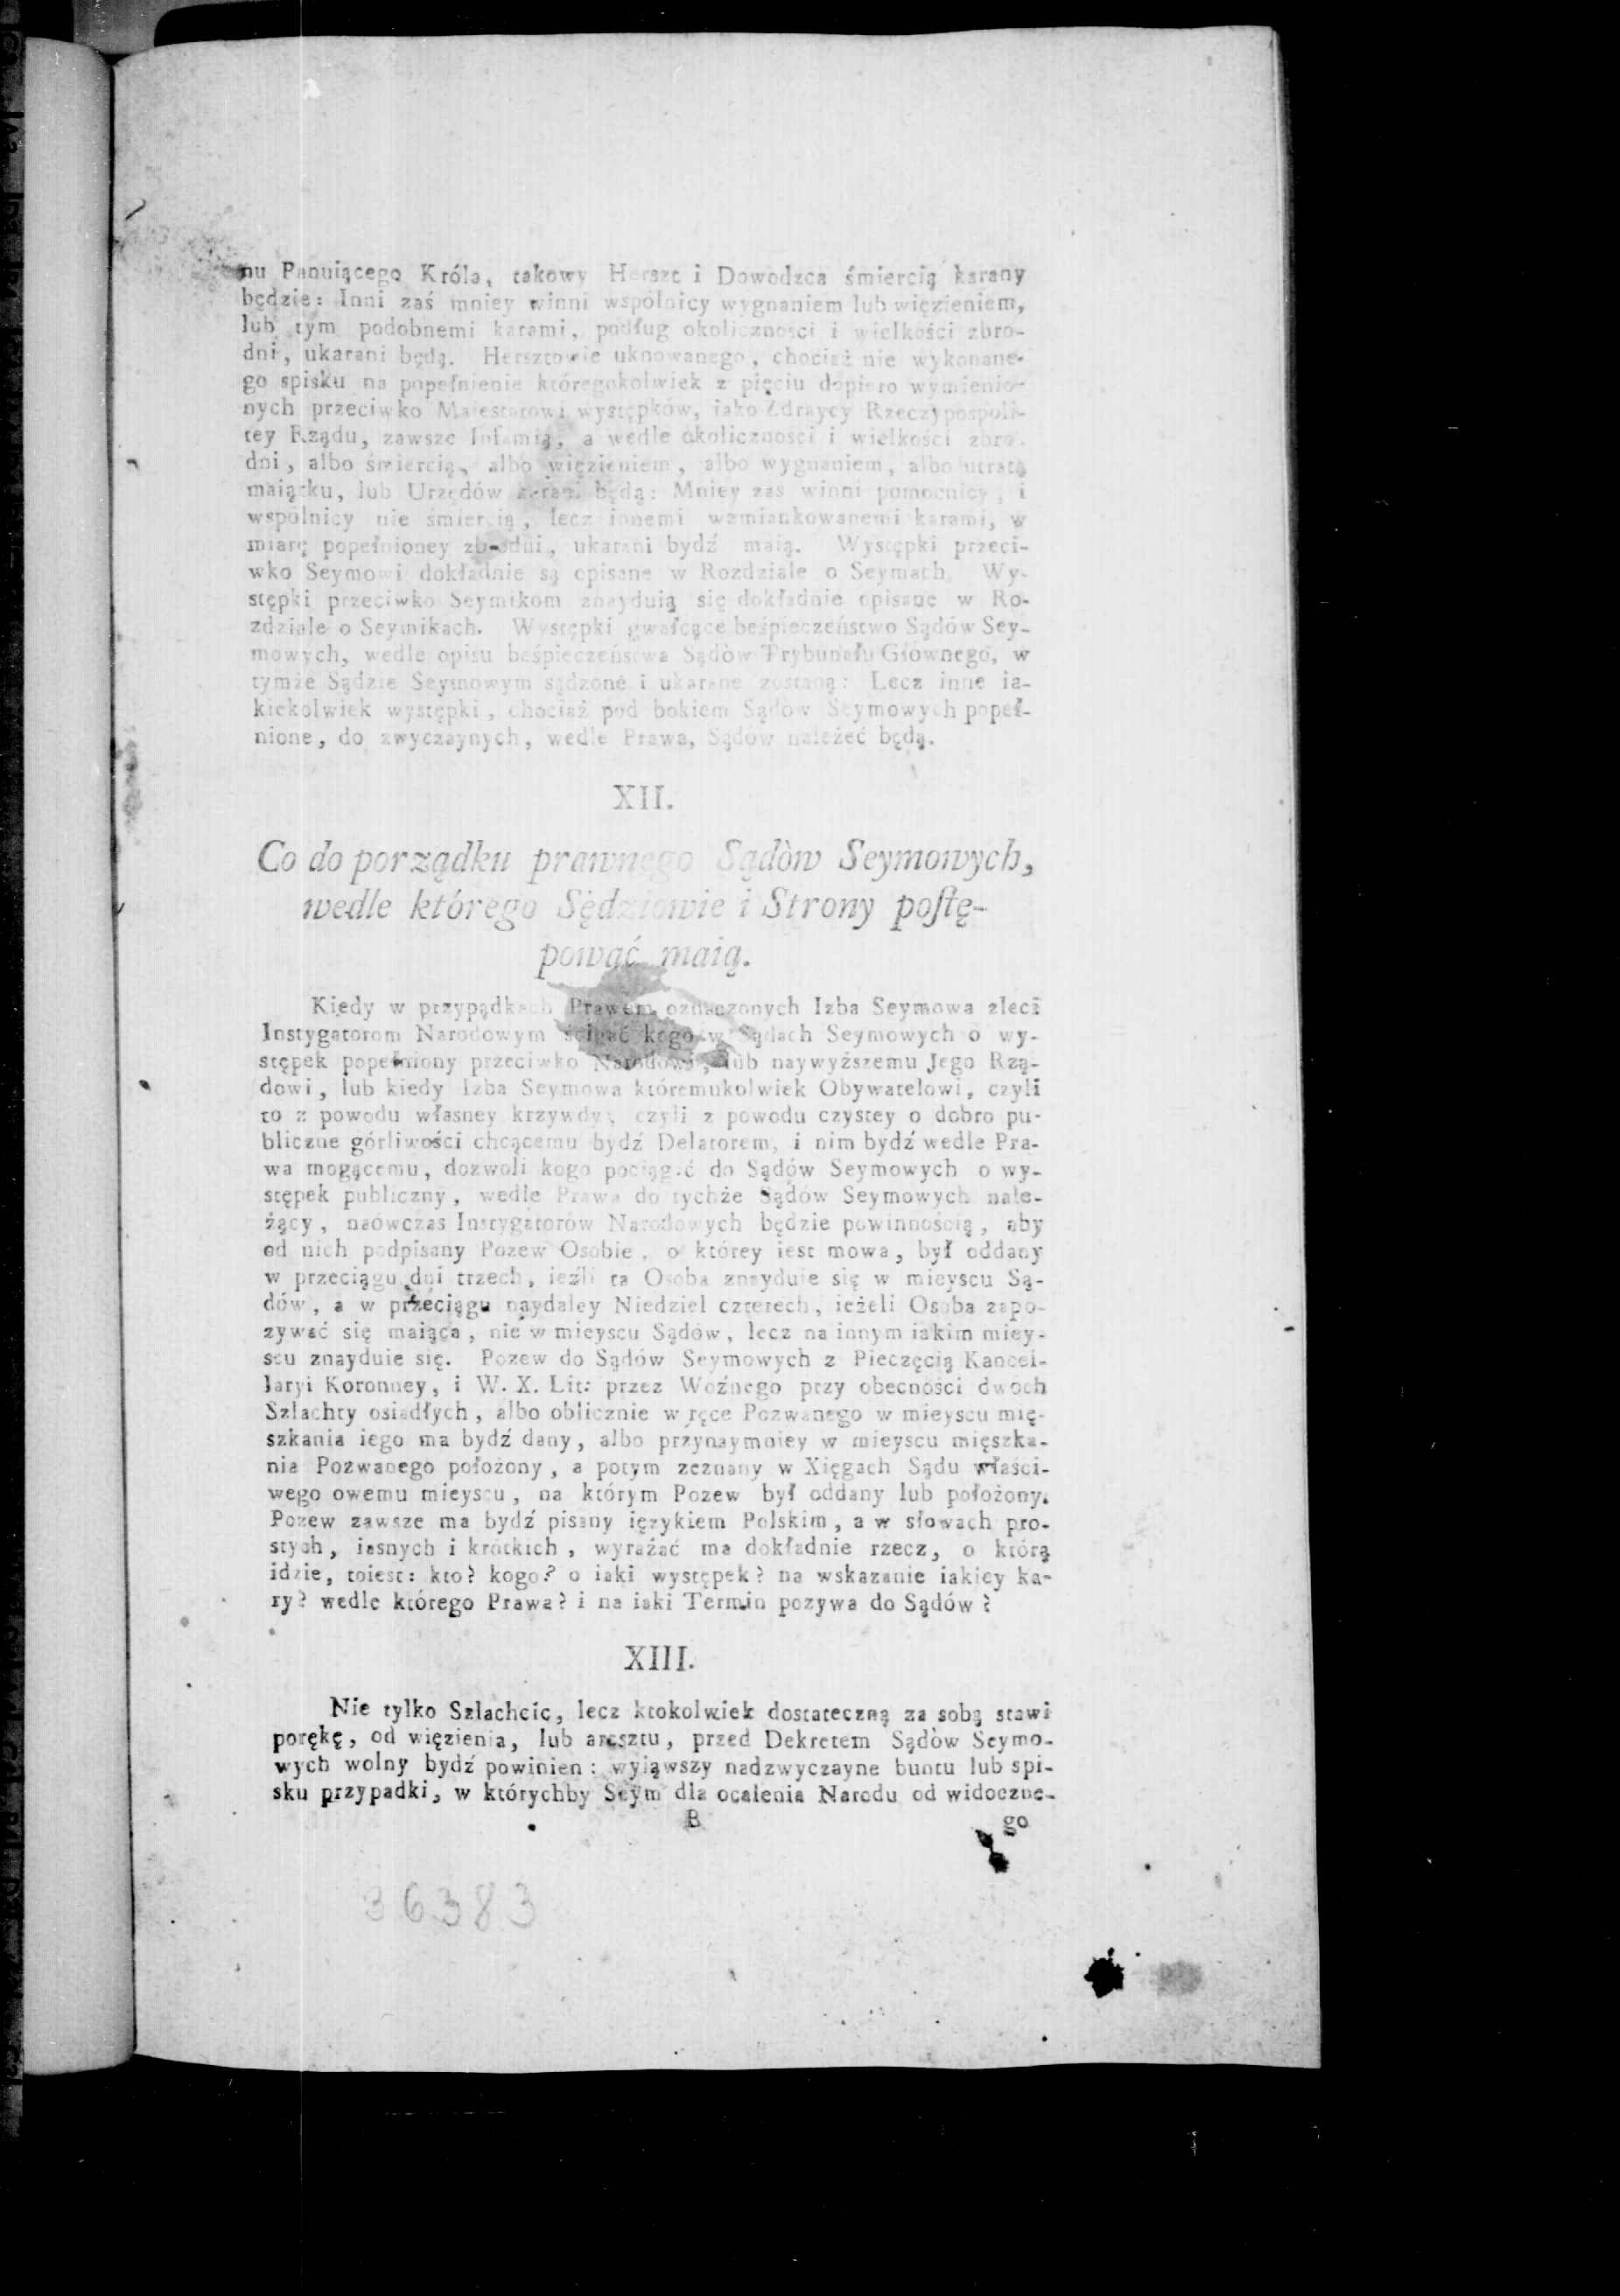 nu Panuiącego Króla, takowy Herszt i Dowodzca śmiercią karany
będzie: Inni zaś mniey winni wspólnicy wygnaniem lub więzieniem,
lub tym podobnemi karami, podług okoliczności i wielkości zbro-
dni, ukarani będą. Hersztowie uknowanego, chociaż nie wykonane-
go spisku na popełnienie któregokolwiek z pięciu dopiero wymienio-
nych przeciwko Maiestatowi występków, iako Zdraycy Rzeczypospoli-
tey Rządu, zawsze Infamią, a wedle okoliczności i wielkości zbro-
dni, albo śmiercią, albo więzieniem, albo wygnaniem, albo utratą
maiątku, lub Urzędów karani będą: Mniey zaś winni pomocnicy, i
wspólnicy nie śmiercią, lecz innemi wzmiankowanemi karami, w
miarę popełnioney zbrodni, ukarani bydź maią. Występki przeci-
wko Seymowi dokładnie są opisane w Rozdziale o Seymach. Wy-
stępki przeciwko Seymikom znayduią się dokładnie opisane w Ro-
zdziale o Seymikach. Występki gwałcące beśpieczeństwo Sądów Sey-
mowych, wedle opisu beśpieczeństwa Sądòw Trybunału Głownego, w
tymże Sądzie Seymowym sądzone i ukarane zostaną: Lecz inne ia-
kiekolwiek występki, chociaż pod bokiem Sądòw Seymowych popeł-
nione, do zwyczaynych, wedle Prawa, Sądow należeć będą.
XII.
Co do porządku prawnego Sądòw Seymowych,
wedle którego Sędziowie i Strony postę-
pować maią.
Kiedy w przypądkach Prawem oznaczonych Izba Seymowa zleci
Instygatorom Narodowym ścigać kogo w Sądach Seymowych o wy-
stępek popełniony przeciwko Narodowi, lub naywyższemu Jego Rzą-
dowi, lub kiedy Izba Seymowa któremukolwiek Obywatelowi, czyli
to z powodu własney krzywdy, czyli z powodu czystey o dobro pu-
bliczne górliwości chcącemu bydź Delatorem, i nim bydź wedle Pra-
wa mogącemu, dozwoli kogo pociągać do Sądów Seymowych o wy-
stępek publiczny, wedle Prawa do tychże Sądów Seymowych nale-
żący, naówczas Instygatorów Narodowych będzie powinnością, aby
od nich podpisany Pozew Osobie, o którey iest mowa, był oddany
w przeciągu dni trzech, ieźli ta Osoba znayduie się w mieyscu Są-
dów, a w przeciągu naydaley Niedziel czterech, ieżeli Osoba zapo-
zywać się maiąca, nie w mieyscu Sądów, lecz na innym iakim miey-
scu znayduie się. Pozew do Sądów Seymowych z Pieczęcią Kancel-
laryi Koronney, i W. X. Lit: przez Woźnego przy obecności dwoch
Szlachty osiadłych, albo oblicznie w ręce Pozwanego w mieyscu mię-
szkania iego ma bydź dany, albo przynaymniey w mieyscu mięszka-
nia Pozwanego położony, a potym zeznany w Xięgach Sądu właści-
wego owemu mieyscu, na którym Pozew był oddany lub położony.
Pozew zawsze ma bydź pisany ięzykiem Polskim, a w słowach pro-
stych, iasnych i krótkich, wyrażać ma dokładnie rzecz, o którą
idzie, toiest: kto? kogo? o iaki występek? na wskazanie iakiey ka-
ry? wedle którego Prawa? i na iaki Termin pozywa do Sądów?
XIII.
Nie tylko Szlachcic, lecz ktokolwiek dostateczną za sobą stawi
porękę, od więzienia, lub aresztu, przed Dekretem Sądòw Seymo-
wych wolny bydź powinien: wyiąwszy nadzwyczayne buntu lub spi-
sku przypadki, w którychby Seym dla ocalenia Narodu od widoczne-
B
go
36383